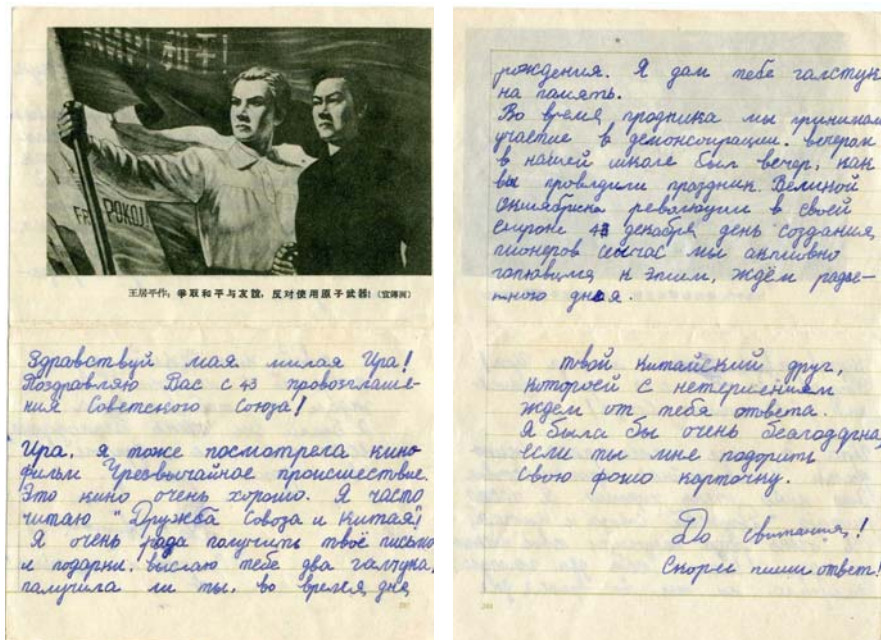 和平
FR
РОКОЈ
王居平作：爭取和平与友誼，反对使用原子武器！(宣傳画)
Здравствуй мая милая Ира!
Поздравляю Вас с 43 провозглаше-
ния Советского Союза!
Ира. я тоже посмотрела кино
фильм Чрезвычайное происшествие.
Это кино очень хорошо. Я часто
читаю "Дружба Совоза и Китая"!
Я очень рада палучить твоё письмо
и подарки. выслаю тебе два галчука,
палучила ли ты. во время, дня,
рождения. Я дам тебе галстук
на память.
Во время, продника мы принимали
участие в демонсоирации. вечерам
в нашей школе был вечер, как
вы провядили праздник. Великой
Октябрина революции в своей
стороне 43 декабря, день создания,
пионеров сейчас мы активно
готовимся к этим, ждём радос-
тного дня.
твой китайский друг,
которсей с нетерпением
ждем от тебя ответа.
Я была бы очень благодарна,
если ты мне подорить
свою фото карточку.
До свитания!
Скорее пиши ответ!